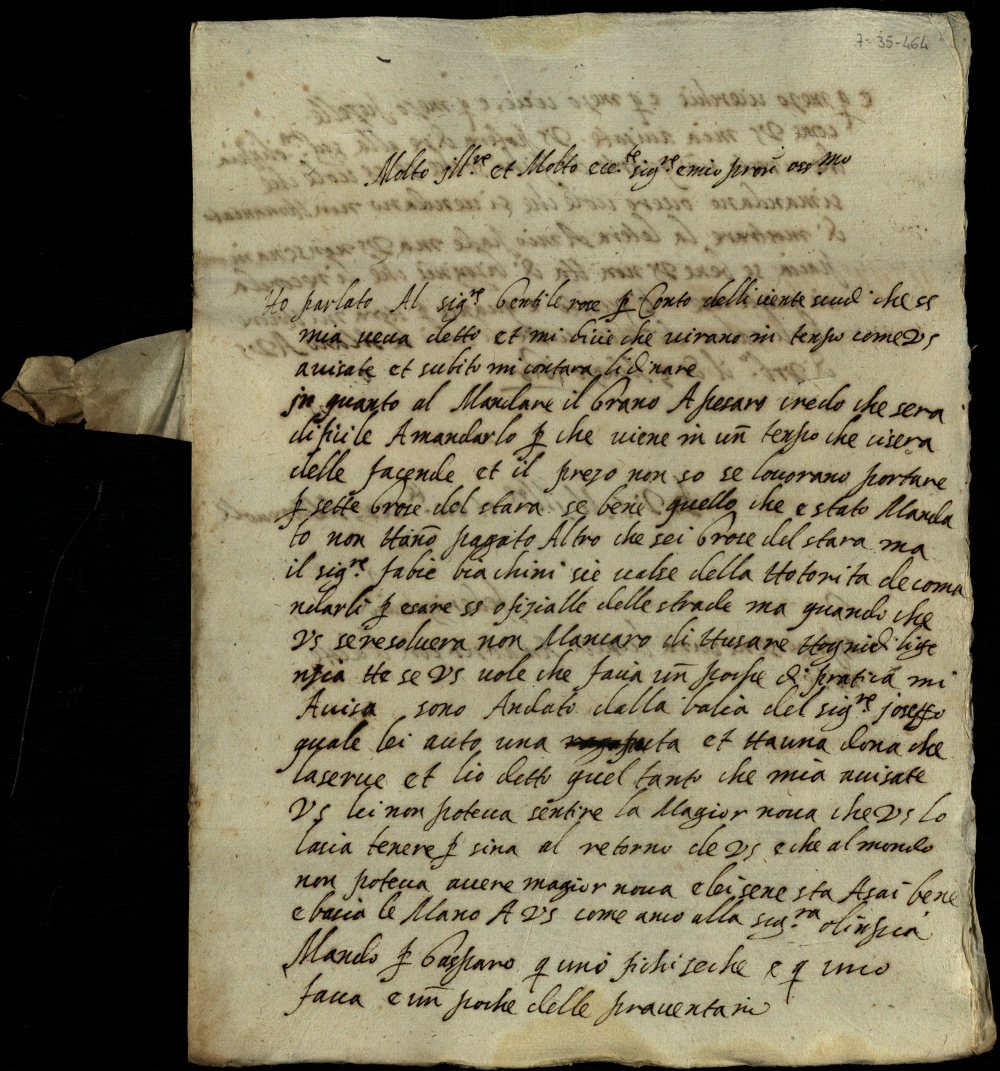 7-35-464
Molto jll.re et Molto ecc.te sig.re e mio pron oss.mo
Ho parlato Al sig.re Gentile rose p Conto delli vente scudi che ss
mia veva detto et mi dicie che virano in tenpo come VS
avisate et subito mi contara li dinare
jn quanto al Mandare il Grano A pesaro credo che sera
dificile A mandarlo p che viene in un tenpo che visera
delle facende et il prezo non so se lo vorano portare
p sette Grose del stara se bene quello che e stato Manda
to non Hano pagato Altro che sei Grose del stara ma
il sig.re fabie biachini sie valse della Hotorita de coma
ndarli p esare ss ofizialle delle strade ma quando che
VS se resolvera non Mancaro di Husare Hogni dilige
nzia He se VS vole che facia un poche di pratica mi
Avisa sono Andato dalla balia del sig.re joseffo
quale lei auto una et Hauna dona che
la serve et lio detto quel tanto che mia avisate
VS lei non poteva sentire la Magior nova che VS lo
lasia tenere p sina al retorno de VS e che al mondo
non poteva avere magior nova e lei sene sta Asai bene
e bacia le Mano A VS come anco alla sig.ra olinpia
Mando p Gasparo q uno fichi seche e q uno
fava e un poche delle